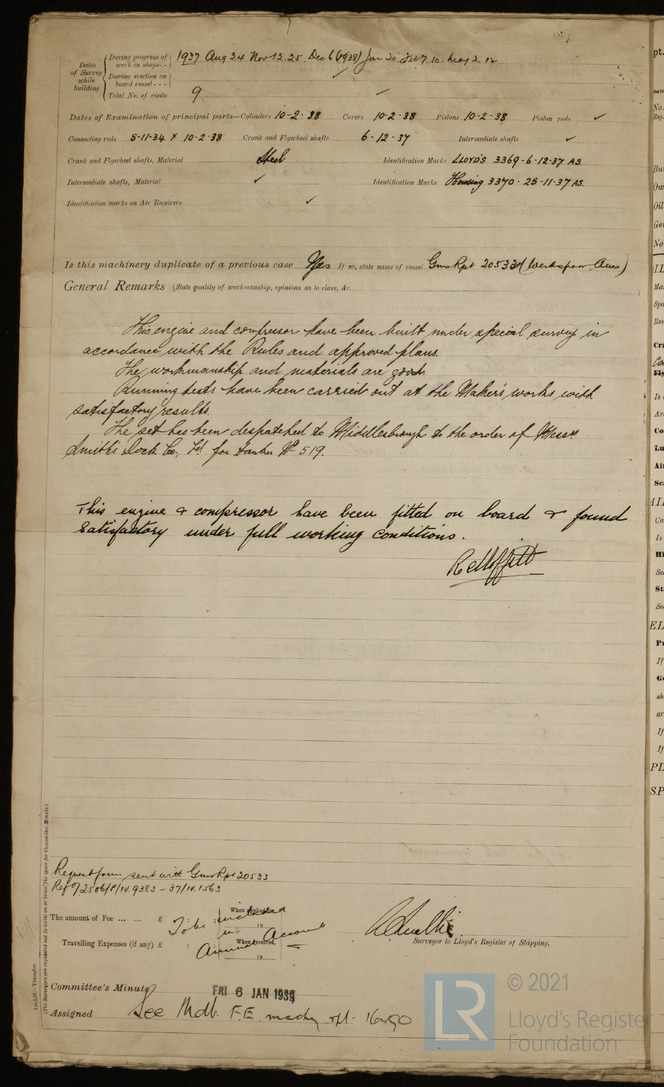 Dates of Survey while building
During progress of work in shops-- 1937 Aug 24 Nov 12. 25. Dec 6 (1938) Jan 20. Feb 7. 10. May 2. 12
During erection on board vessel---
Total No. of visits 9
Dates of Examination of principal parts—Cylinders 10-2-38 Covers 10-2-38 Pistons 10-2-38 Piston rods ✓
Connecting rods 5-11-34 & 10-2-38 Crank and Flywheel shafts 6-12-37 Intermediate shafts ✓
Crank and Flywheel shafts, Material Steel Identification Marks LLOYD'S 3369-6-12-37 AS.
Intermediate shafts, Material ✓ Identification Marks Housing 3370-25-11-37 AS.
Identification marks on Air Receivers ✓
Is this machinery duplicate of a previous case Yes If so, state name of vessel Gms Rpt 20533 (Werkspoor, Ams)
General Remarks (State quality of workmanship, opinions as to class, &c.
This engine and compressor have been built under special survey in
accordance with the Rules and approved plans.
The workmanship and materials are good.
Running tests have been carried out at the Makers works with
satisfactory results.
The set has been despatched to Middlesbrough to the order of Messrs
Smith's Dock Co, Ltd for Tanker No 519.
This engine & compressor have been fitted on board & found
satisfactory under full working conditions.
R C Moffitt
Request form sent with Gms Rpt 20533
The amount of Fee ... ... £ To be included
When applied for, 19
Travelling Expenses (if any) £ in Annual Account
When received, 19
Surveyor to Lloyd's Register of Shipping.
Committee's Minute FRI 6 JAN 1939
Assigned See Mdb. F.E. machy rpt. 16490
(The Surveyors are requested not to write on or below the space for Committee Minute.)
© 2021
LR
Lloyd's Register
Foundation